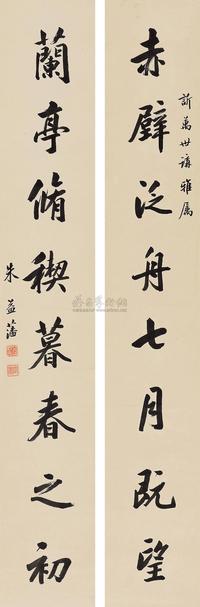 訢萬世講雅属
赤壁泛舟七月既望
蘭亭脩禊暮春之初
朱益藩